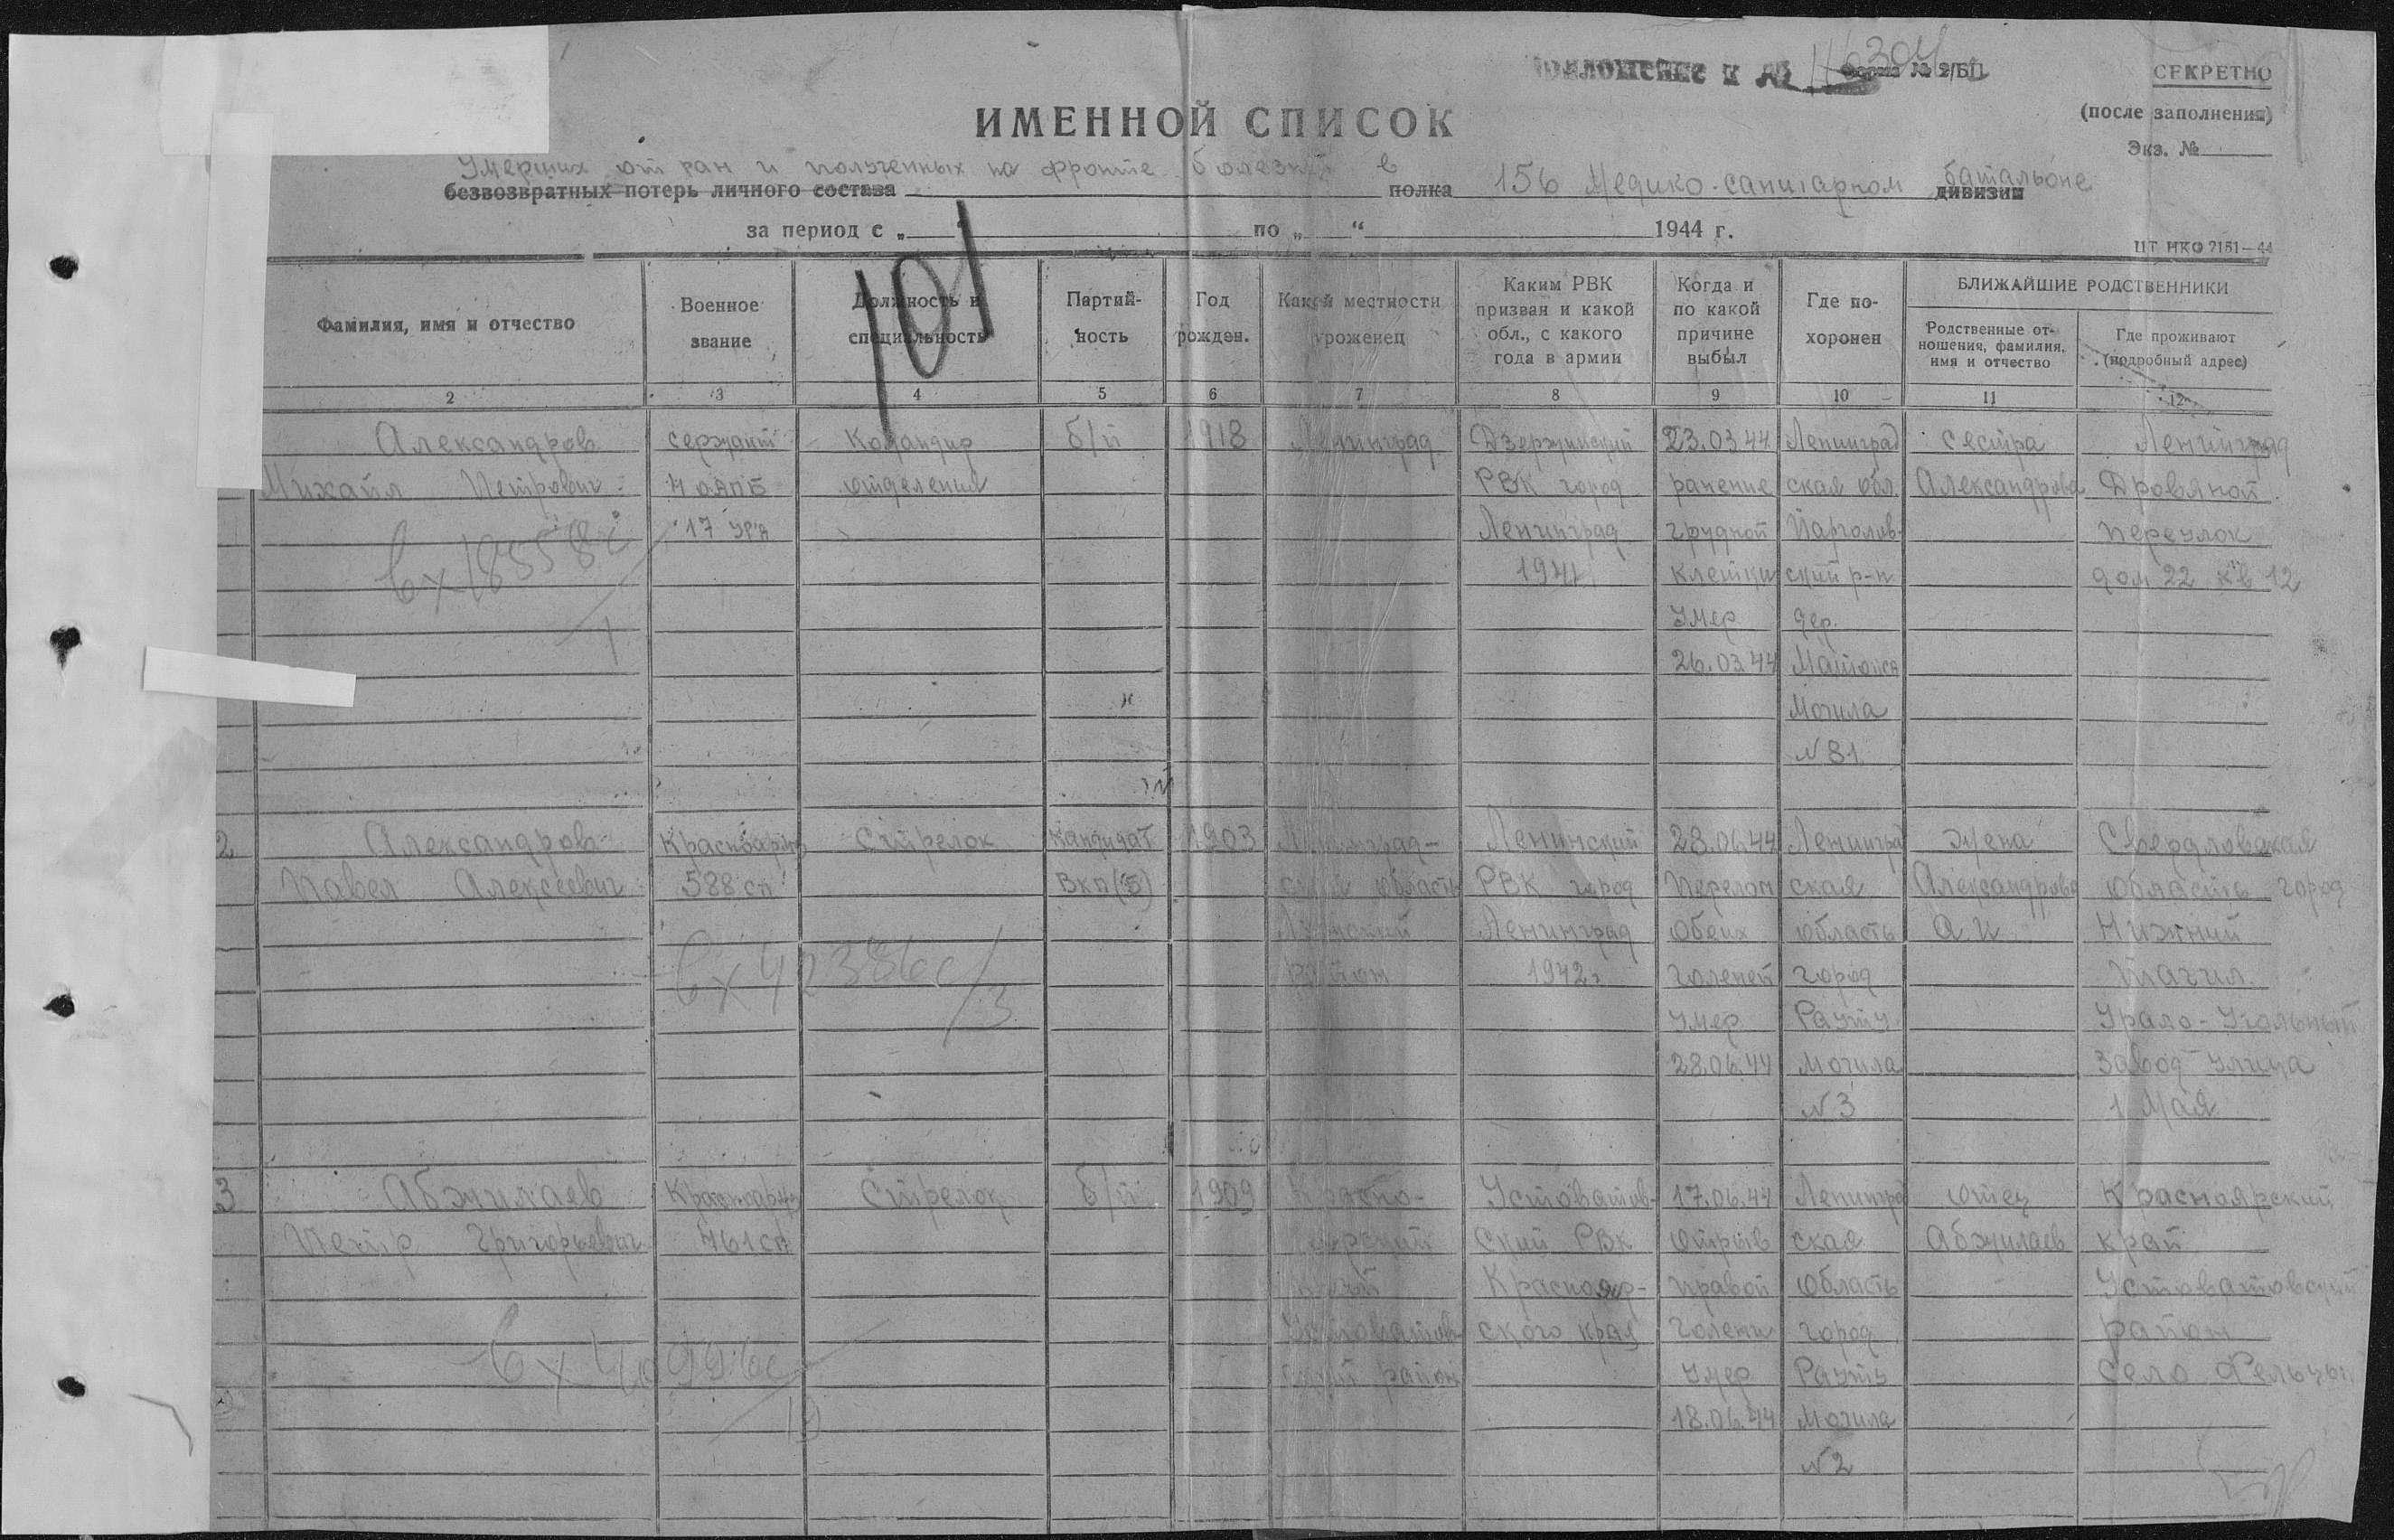 Приложение к № 16304
Форма № 2/БП
СЕКРЕТНО
(после заполнения)
Экз. №
ИМЕННОЙ СПИСОК
Умерших от ран и полученных на фронте болезней в 156 Медико-санитарном батальоне
безвозвратных потерь личного состава полка дивизии
за период с „ по „ “ 1944 г.
ЦТ НКО 7151—44
Фамилия, имя и отчество
Военное звание
Должность и специальность
101
Партийность
Год рожден.
Какой местности уроженец
Каким РВК призван и какой обл., с какого года в армии
Когда и по какой причине выбыл
Где похоронен
БЛИЖАЙШИЕ РОДСТВЕННИКИ
Родственные отношения, фамилия, имя и отчество
Где проживают (подробный адрес)
2 3 4 5 6 7 8 9 10 11 12
Александров сержант Командир б/п 1918 Ленинград Дзержинский 23.03.44 Ленинград сестра Ленинград
Михаил Петрович 4 ОАПБ отделения РВК город ранение ская обл. Александрова Дровяной
17 Ура Ленинград грудной Парголов- переулок
вх18558с
1941 клетки ский р-н дом 22 кв 12
1
умер дер.
26.03.44
Могила
№ 81
2 Александров Красноарм Стрелок Кандидат 1903 Ленинград- Ленинский 28.06.44 Ленинград жена Свердловская
Павел Алексеевич 588 сп ВКП(Б) ская область РВК город Перелом ская Александрова область город
Ленинград обеих область А.И Нижний
вх 40386с/3
район 1942г голеней город Тагил
умер Рауту Урало-Угольный
28.06.44 Могила Завод улица
№ 3 1 Мая
3 Абжилаев Красноарм Стрелок б/п 1909 Красно- 17.06.44 Ленинград отец Красноярский
Петр Григорьевич 461 сп ярский ский РВК отрыв ская Абжилаев край
край Краснояр- правой область
ского края голени город район
вх 40996с
19
ский район умер Рауту село
18.06.44 Могила
№ 2